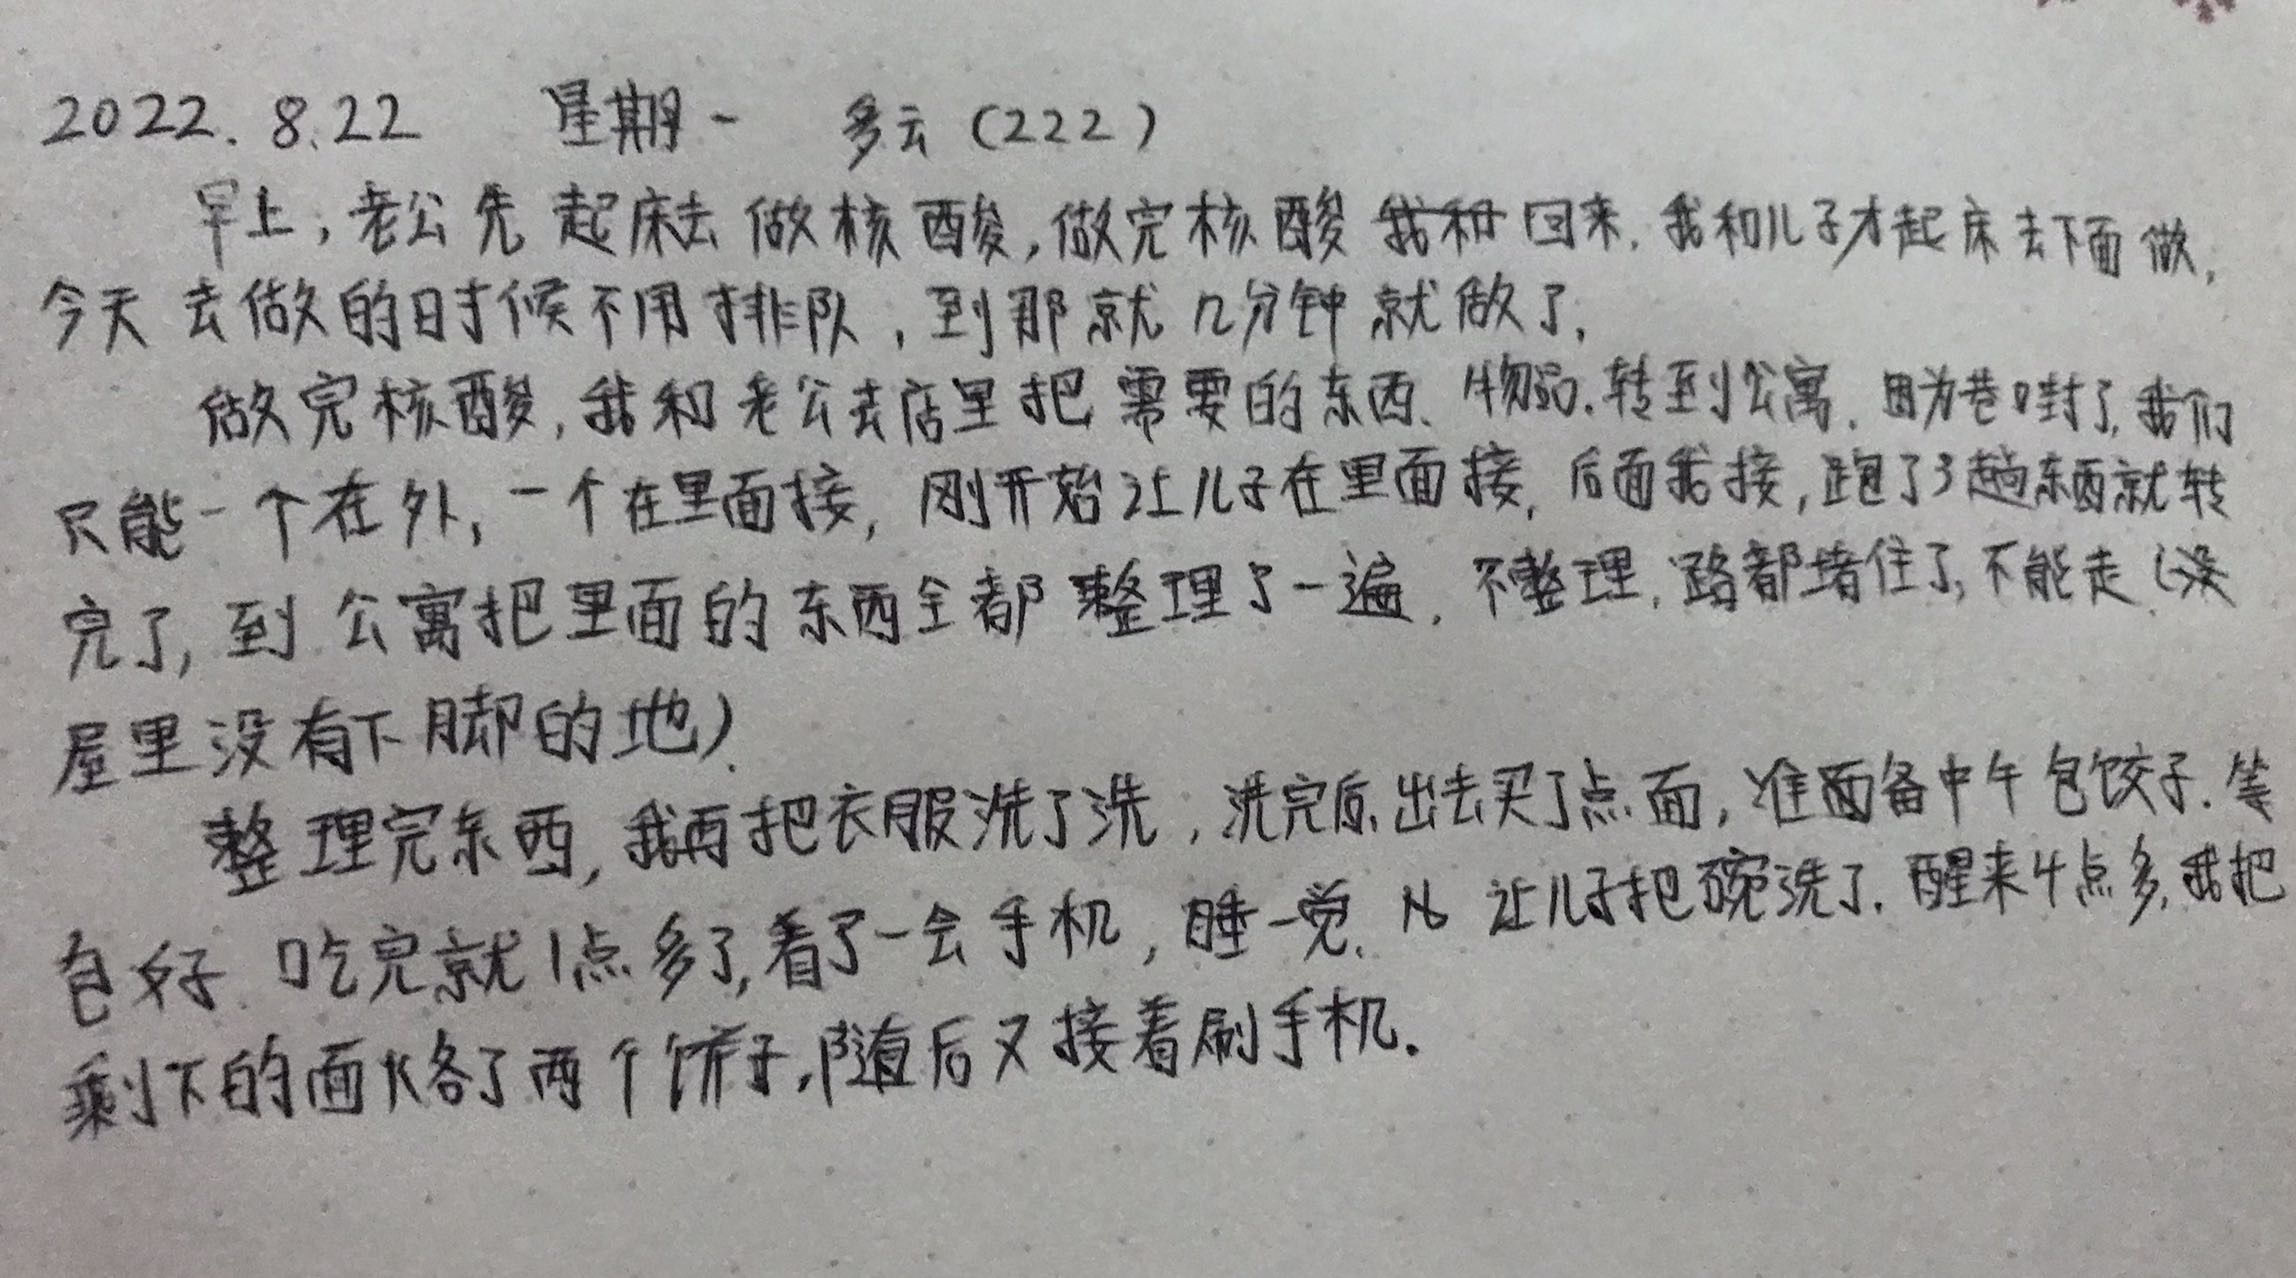 2022.8.22 星期一 多云(222)
早上,老公先起床去做核酸,做完核酸我和回来.我和儿子才起床去下面做,
今天去做的时候不用排队,到那就几分钟就做了.
做完核酸,我和老公去店里把需要的东西、物品.转到公寓.因为巷口封了,我们
只能一个在外,一个在里面接,刚开始让儿子在里面接,后面我接,跑了3趟东西就转
完了,到公寓把里面的东西全都整理了一遍.不整理,路都堵住了,不能走.(没
屋里没有下脚的地).
整理完东西,我再把衣服洗了洗,洗完后,出去买了点面,准面备中午包饺子.等
包好.吃完就1点多了,看了一会手机,睡一觉.让儿子把碗洗了.醒来4点多,我把
剩下的面烙了两个饼子,随后又接着刷手机.